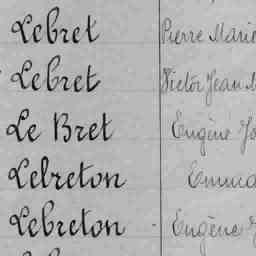 Lebret Pierre Marie
Lebret Victor Jean M
Le Bret Eugène Jo
Lebreton
Lebreton - Eugène